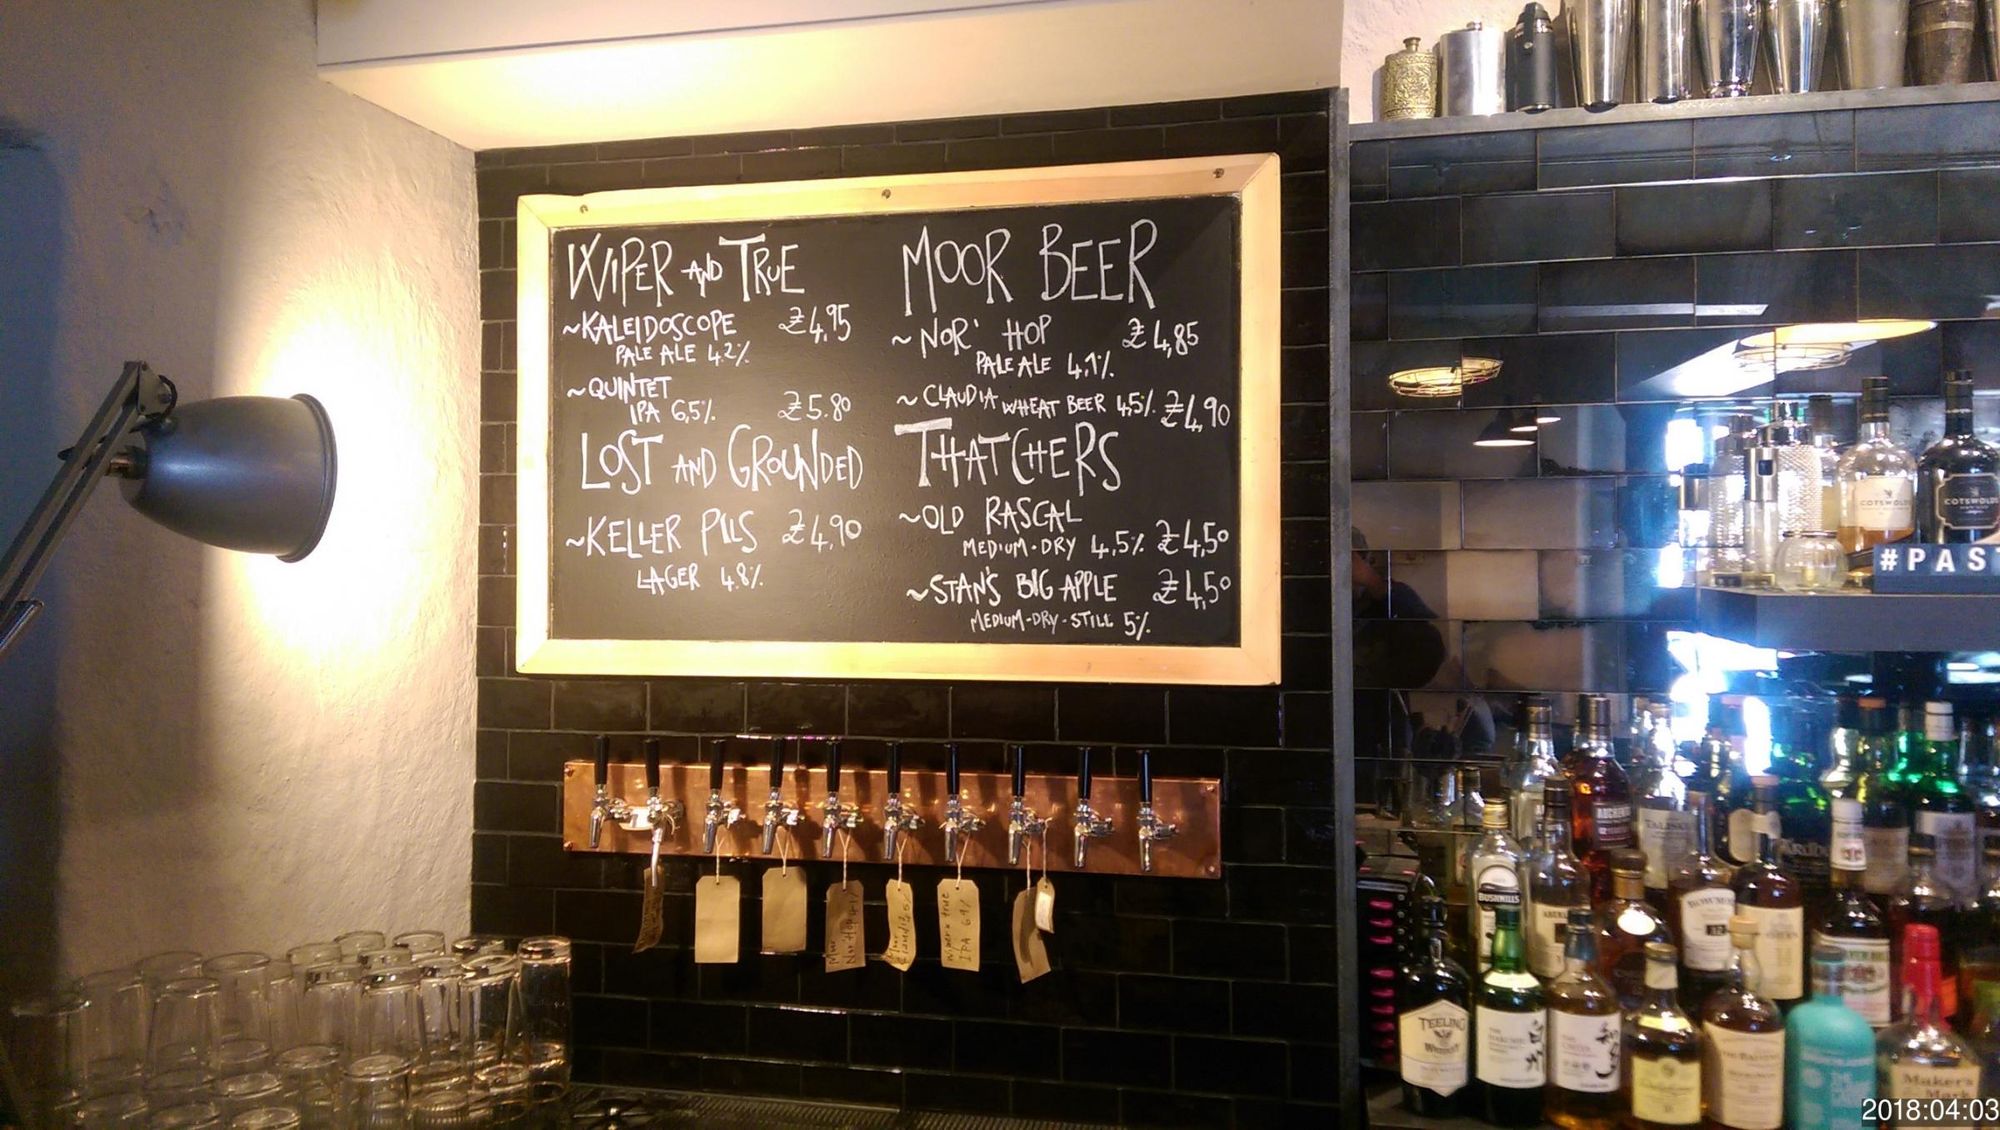 WIPER AND TRUE
~KALEIDOSCOPE £4,95
PALE ALE 4.2%
~QUINTET
IPA 6,5% £5.80
LOST AND GROUNDED
~KELLER PILS £4,90
LAGER 4.8%
MOOR BEER
~NOR' HOP £4,85
PALE ALE 4,1%
~CLAUDIA WHEAT BEER 4,5% £4,90
THATCHERS
~OLD RASCAL
MEDIUM-DRY 4,5% £4,50
~STAN'S BIG APPLE £4,50
MEDIUM-DRY-STILL 5%
Moor
Nor'Hop 4.1%
Claudia 4,5%
IPA
COTSWOLDS
COTSWOLDS
#PAST
TALISKER
BUSHMILLS
BOWMORE
12
TEELING
WHISKEY
THE
Maker's
Mark
2018:04:03